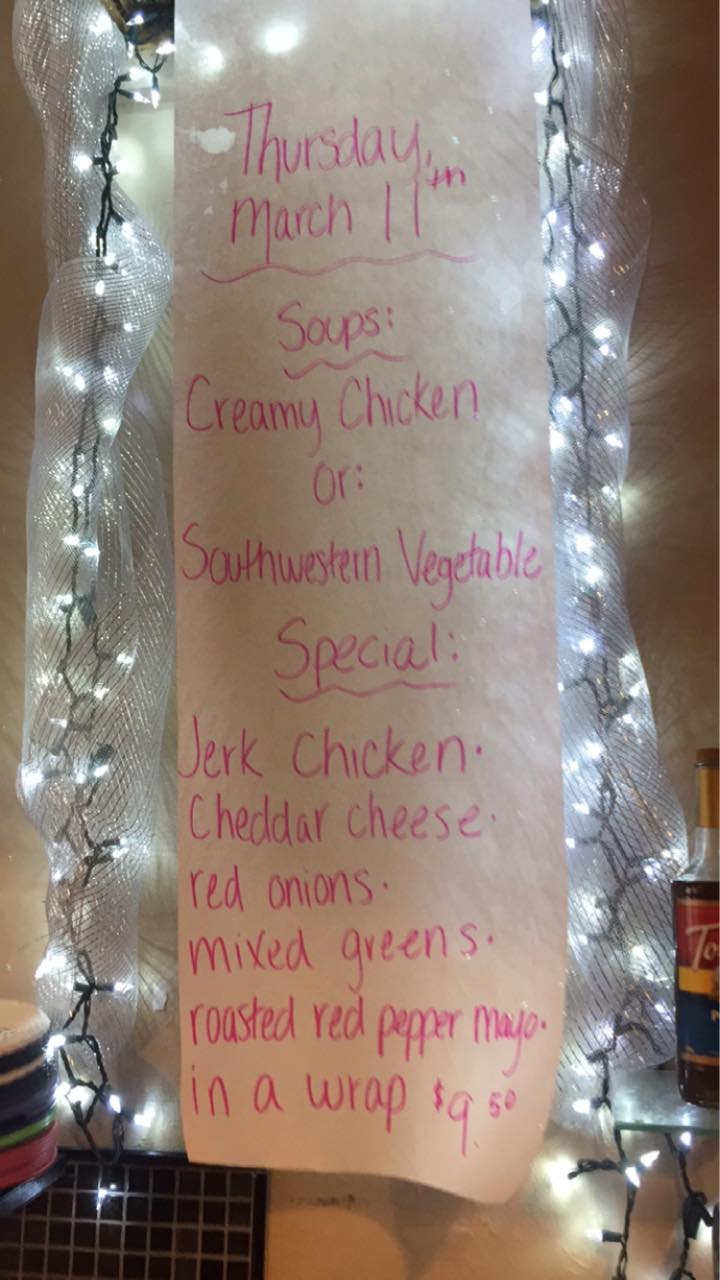 Thursday,
March 11th
Soups:
Creamy Chicken
or:
Southwestern Vegetable
Special:
Jerk Chicken.
Cheddar cheese.
red onions.
mixed greens.
roasted red pepper mayo.
in a wrap $9.50